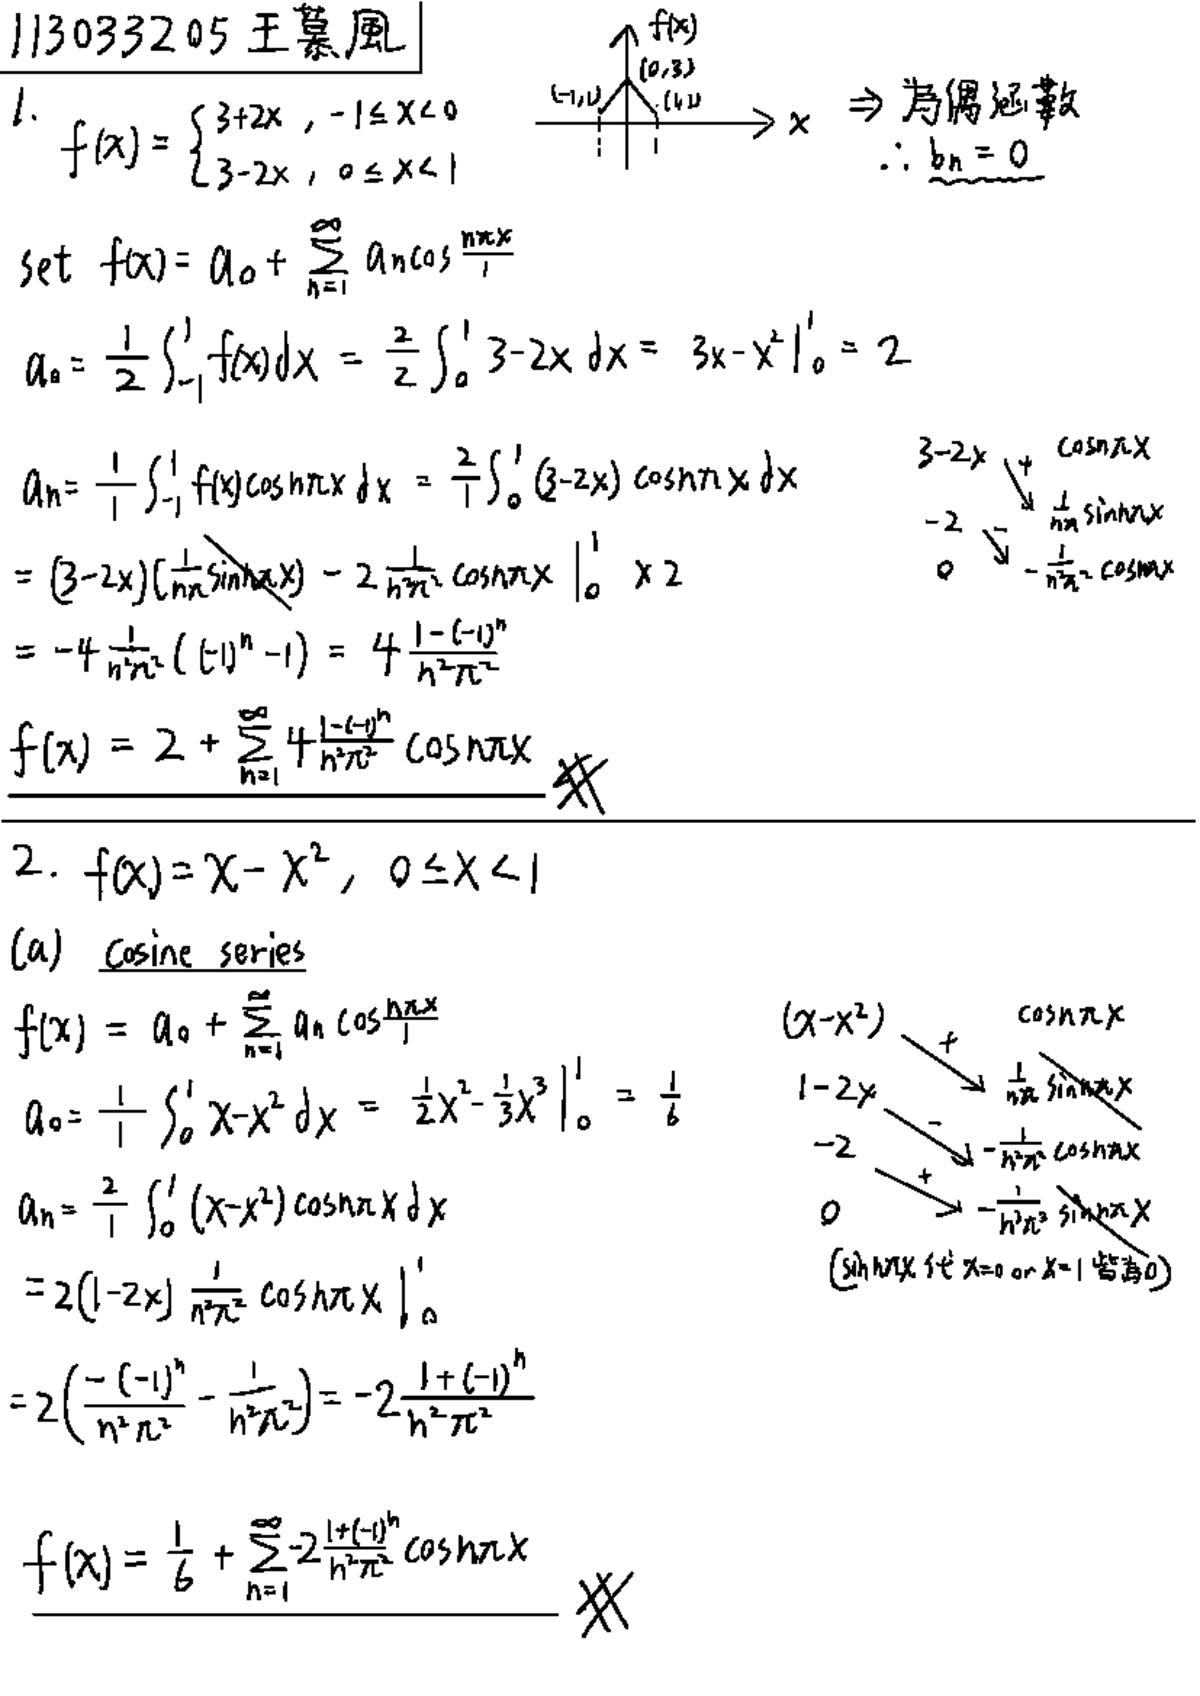 113033205 王慕風
1. f(x) = { 3+2x , -1 ≤ x < 0
3-2x , 0 ≤ x < 1
f(x)
(0,3)
(-1,1) (1,1)
x
-1 1
⇒ 為偶函數
∴ bn = 0
set f(x) = a₀ + ∑_{n=1}^{∞} an cos nπx/1
a₀ = 1/2 ∫_{-1}^{1} f(x)dx = 2/2 ∫_0^1 3-2x dx = 3x-x² |_0^1 = 2
an = 1/1 ∫_{-1}^{1} f(x)cosnπx dx = 2/1 ∫_0^1 (3-2x) cosnπx dx
3-2x + cosnπx
-2 - 1/nπ sinnπx
0 -1/n²π² cosnπx
= (3-2x)(1/nπ sinnπx) - 2 1/n²π² cosnπx |_0^1 x 2
= -4 1/n²π² ((-1)ⁿ -1) = 4 (1-(-1)ⁿ)/n²π²
f(x) = 2 + ∑_{n=1}^{∞} 4 (1-(-1)ⁿ)/n²π² cosnπx
2. f(x) = x - x² , 0 ≤ x < 1
(a) Cosine series
f(x) = a₀ + ∑_{n=1}^{∞} an cos nπx/1
a₀ = 1/1 ∫_0^1 x-x² dx = 1/2x² - 1/3x³ |_0^1 = 1/6
an = 2/1 ∫_0^1 (x-x²) cosnπx dx
= 2(1-2x) 1/n²π² cosnπx |_0^1
= 2( -(-1)ⁿ/n²π² - 1/n²π² ) = -2 (1+(-1)ⁿ)/n²π²
(x-x²) + cosnπx
1-2x - 1/nπ sinnπx
-2 + -1/n²π² cosnπx
0 -1/n³π³ sinnπx
(sinnπx 代 x=0 or x=1 皆為0)
f(x) = 1/6 + ∑_{n=1}^{∞} -2 (1+(-1)ⁿ)/n²π² cosnπx